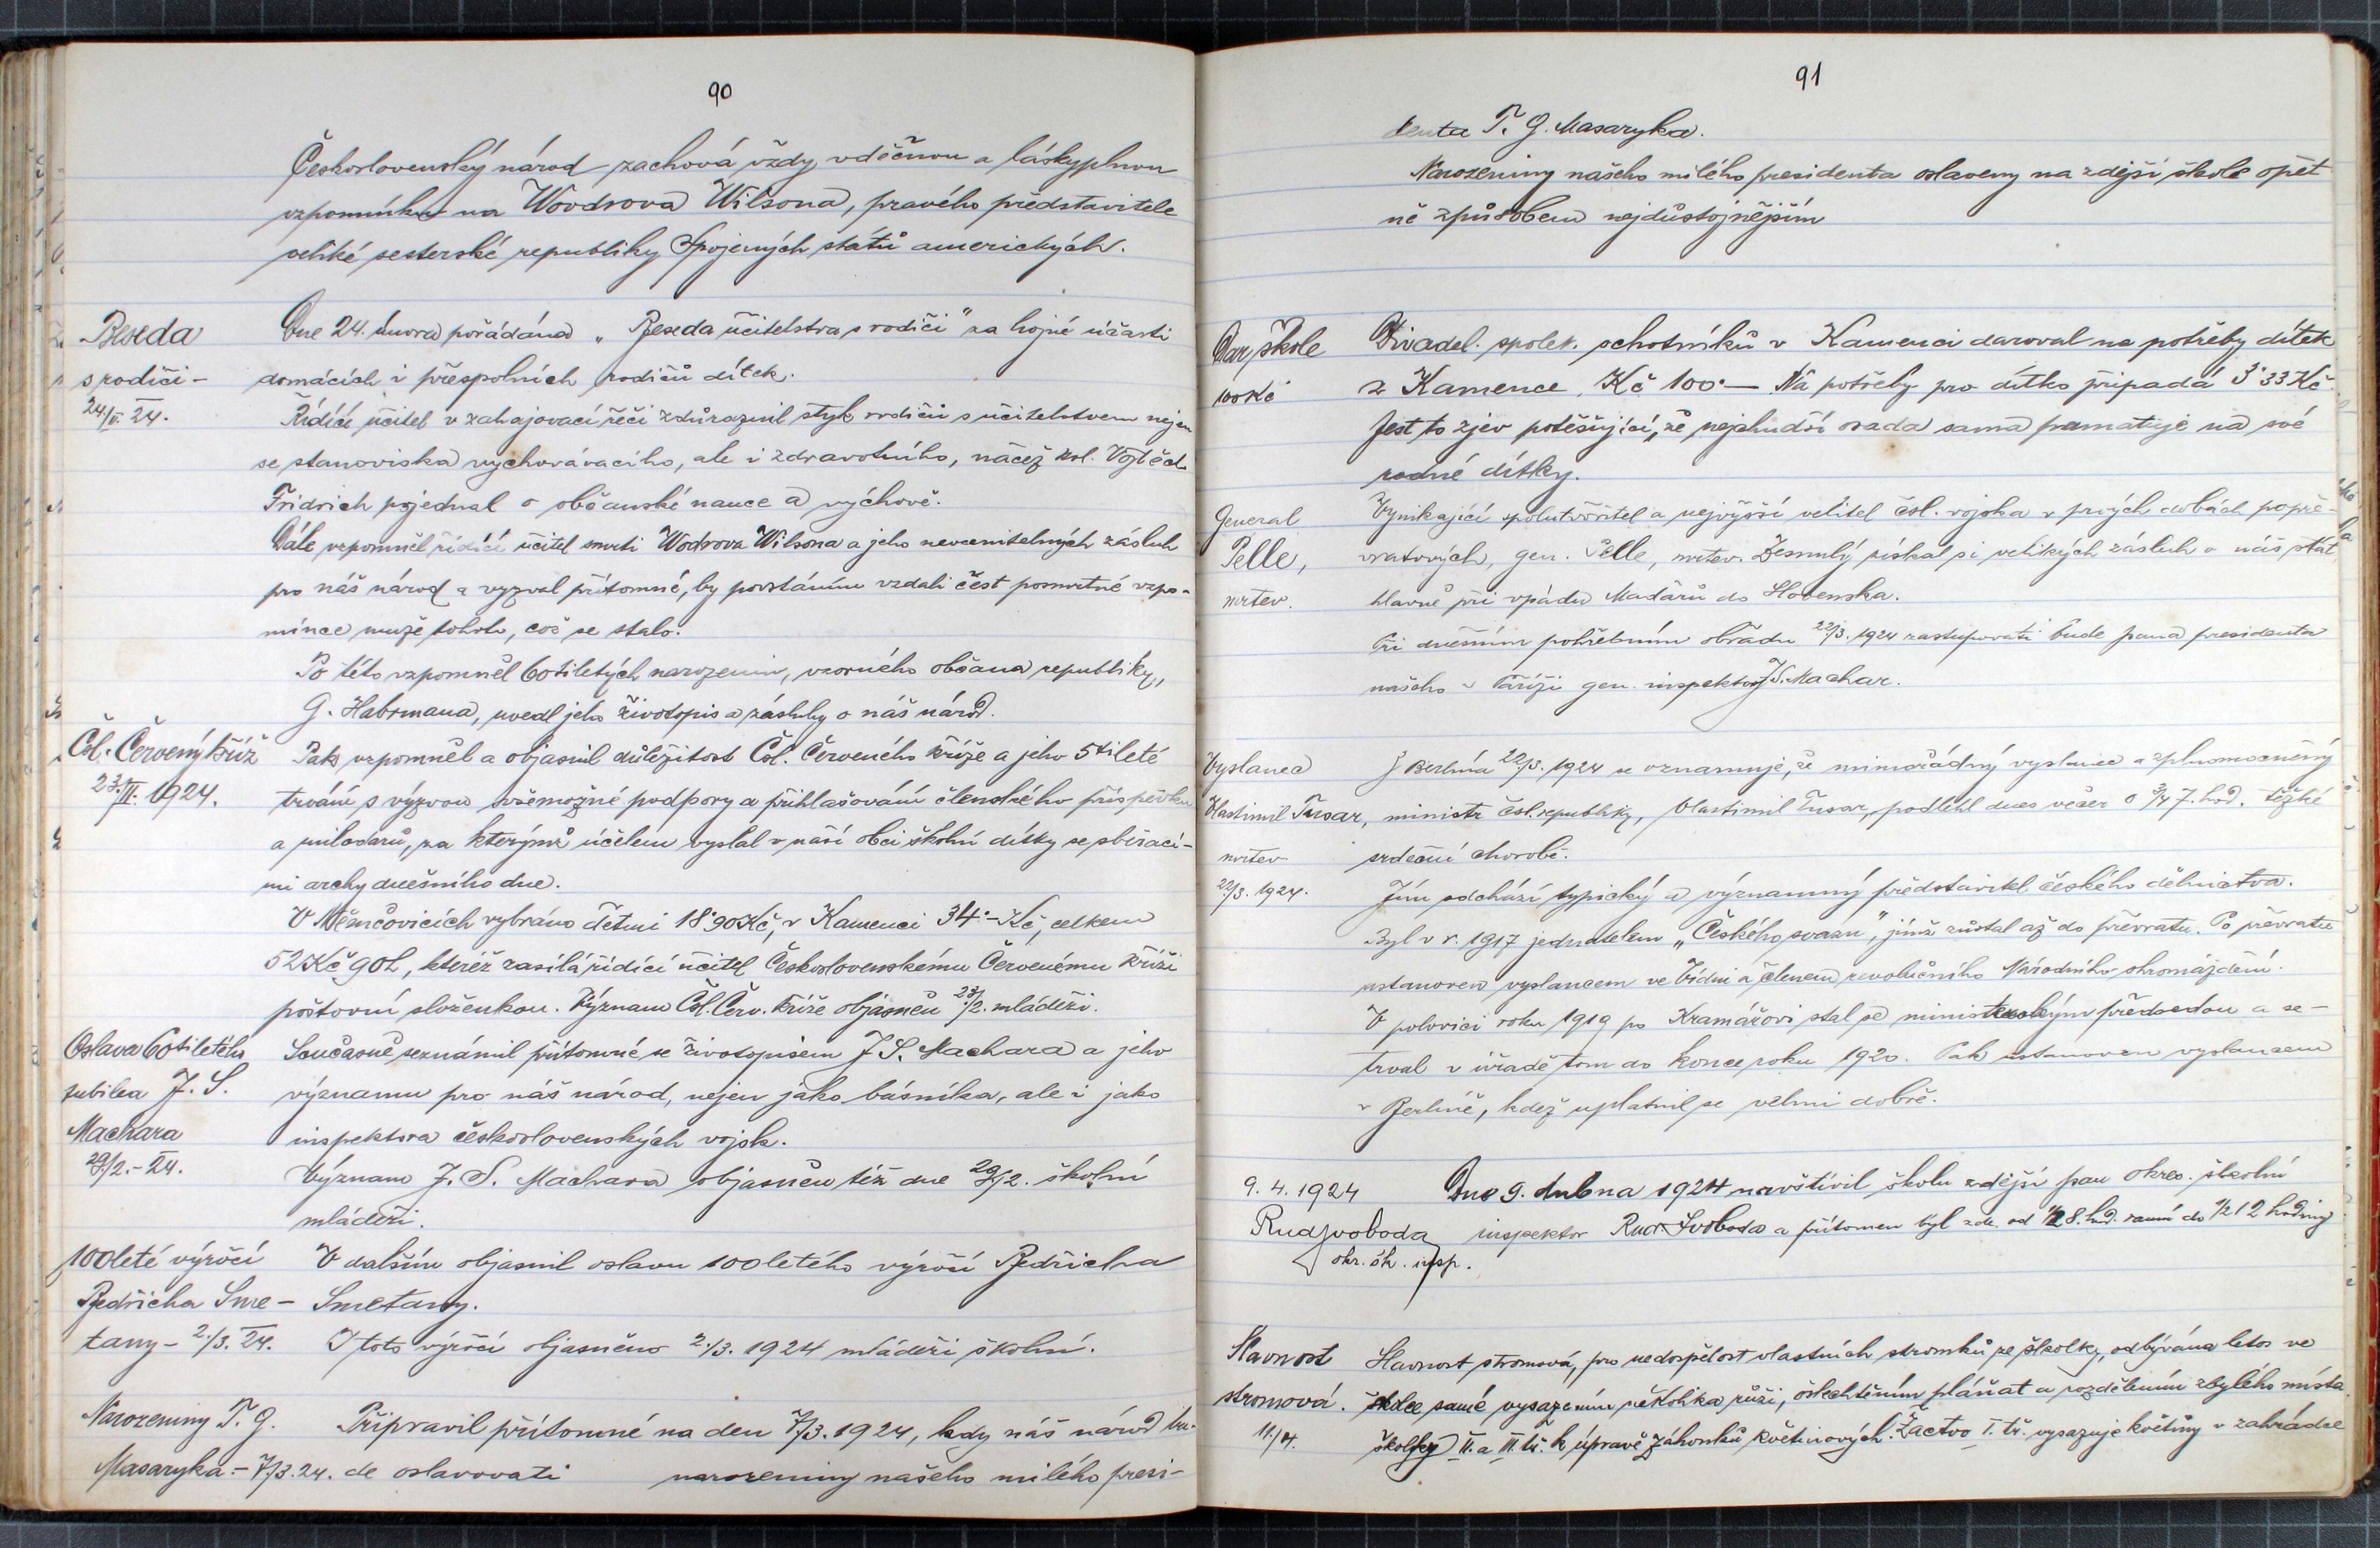 90
Československý národ zachová vždy vděčnou a láskyplnou
vzpomínku na Woodrova Wilsona, pravého představitele
veliké sesterské republiky Spojených států amerických.
Beseda
s rodiči -
24./II. 24.
Dne 24. února pořádána „Beseda učitelstva s rodiči" za hojné účasti
domácích i přespolních rodičů dítek.
Řídící učitel v zahajovací řeči zdůraznil styk rodičů s učitelstvem nejen
se stanoviska vychovávacího, ale i zdravotního, načež kol. Vojtěch
Fridrich pojednal o občanské nauce a výchově.
Dále vzpomněl řídící učitel smrti Wodrova Wilsona a jeho neocenitelných zásluh
pro náš národ a vyzval přítomné, by povstáním vzdali čest posmrtné vzpo-
mínce muže tohoto, což se stalo.
Po této vzpomněl 60tiletých narozenin, vzorného občana republiky,
G. Habrmana, uvedl jeho životopis a zásluhy o náš národ.
Čsl. Červený kříž
23./II. 1924.
Pak vzpomněl a objasnil důležitost Čsl. Červeného kříže a jeho 5tileté
trvání s výzvou všemožné podpory a přihlašování členského příspěvku
a milodarů, za kterýmž účelem vyslal v naší obci školní dítky se sbírací-
mi archy dnešního dne.
V Němčovicích vybráno dětmi 18·90 Kč, v Kamenci 34·- Kč, celkem
52 Kč 90 h, kteréž zasílá řídící učitel Československému Červenému kříži
poštovní složenkou. Význam Čsl. Červ. kříže objasněn 23./2. mládeži.
Oslava 60tiletého
jubilea J. S.
Machara
29./2. - 24.
Současně seznámil přítomné se životopisem J. S. Machara a jeho
významu pro náš národ, nejen jako básníka, ale i jako
inspektora československých vojsk.
Význam J. S. Machara objasněn též dne 29./2. školní
mládeži.
100leté výročí
Bedřicha Sme-
tany - 2./3. 24.
V dalším objasnil oslavu 100letého výročí Bedřicha
Smetany.
I toto výročí objasněno 2./3. 1924 mládeži školní.
Narozeniny T. G.
Masaryka. - 7./3. 24.
Připravil přítomné na den 7./3. 1924, kdy náš národ bu-
de oslavovati narozeniny našeho milého presi-
91
denta T. G. Masaryka.
Narozeniny našeho milého presidenta oslaveny na zdejší škole opět
ně způsobem nejdůstojnějším
Dar škole
100 Kč
Divadel. spolek. ochotníků v Kamenci daroval na potřeby dítek
z Kamence, Kč 100·— Na potřeby pro dítko připadá 3·33 Kč
Jest to zjev potěšující, že nejchudší osada sama pamatuje na své
rodné dítky.
General
Pelle,
mrtev.
Vynikající spolutvořitel a nejvyšší velitel čsl. vojska v prvých dobách popře-
vratových, gen. Pelle, mrtev. Zesnulý získal si velikých zásluh o náš stát
hlavně při vpádu Maďarů do Slovenska.
Při dnešním pohřebním obřadu 22/3. 1924 zastupovati bude pana presidenta
našeho v Paříži gen. inspektor J. S. Machar.
Vyslanec
Vlastimil Tusar,
mrtev
22/3. 1924.
Z Berlína 22/3. 1924 se oznamuje, že mimořádný vyslanec a zplnomocněný
ministr čsl. republiky, Vlastimil Tusar, podlehl dnes večer o 3/4 7. hod. těžké
srdeční chorobě.
Jím odchází typický a významný představitel českého dělnictva.
Byl v r. 1917 jednatelem „Českého svazu", jímž zůstal až do převratu. Po převratu
ustanoven vyslancem ve Vídni a členem revolučního Národního shromáždění.
V polovici roku 1919 po Kramářovi stal se ministerským předsedou a se-
trval v úřadě tom do konce roku 1920. Pak ustanoven vyslancem
v Berlíně, kdež uplatnil se velmi dobře.
9. 4. 1924
Rud Svoboda
okr. šk. insp.
Dne 9. dubna 1924 navštívil školu zdejší pan okres. školní
inspektor Rud. Svoboda a přítomen byl zde od 1/2 8. hod. ranní do 1/2 12 hodiny
Slavnost
stromová.
11./4.
Slavnost stromová, pro nedospělost vlastních stromků ze školky, odbývána letos ve
školce samé vysazením několika růží, ošlechtěním pláňat a rozdělením zbylého místa
školky II. a III. tř. k úpravě záhonků květinových. Žactvo I. tř. vysazuje květiny v zahrádce